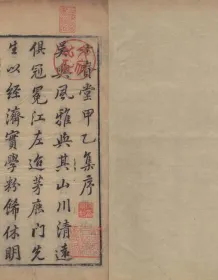 濟堂甲乙集序
吳興風雅與其山川清遠
俱冠冕江左迨茅鹿門先
生以經濟實學粉飾休明